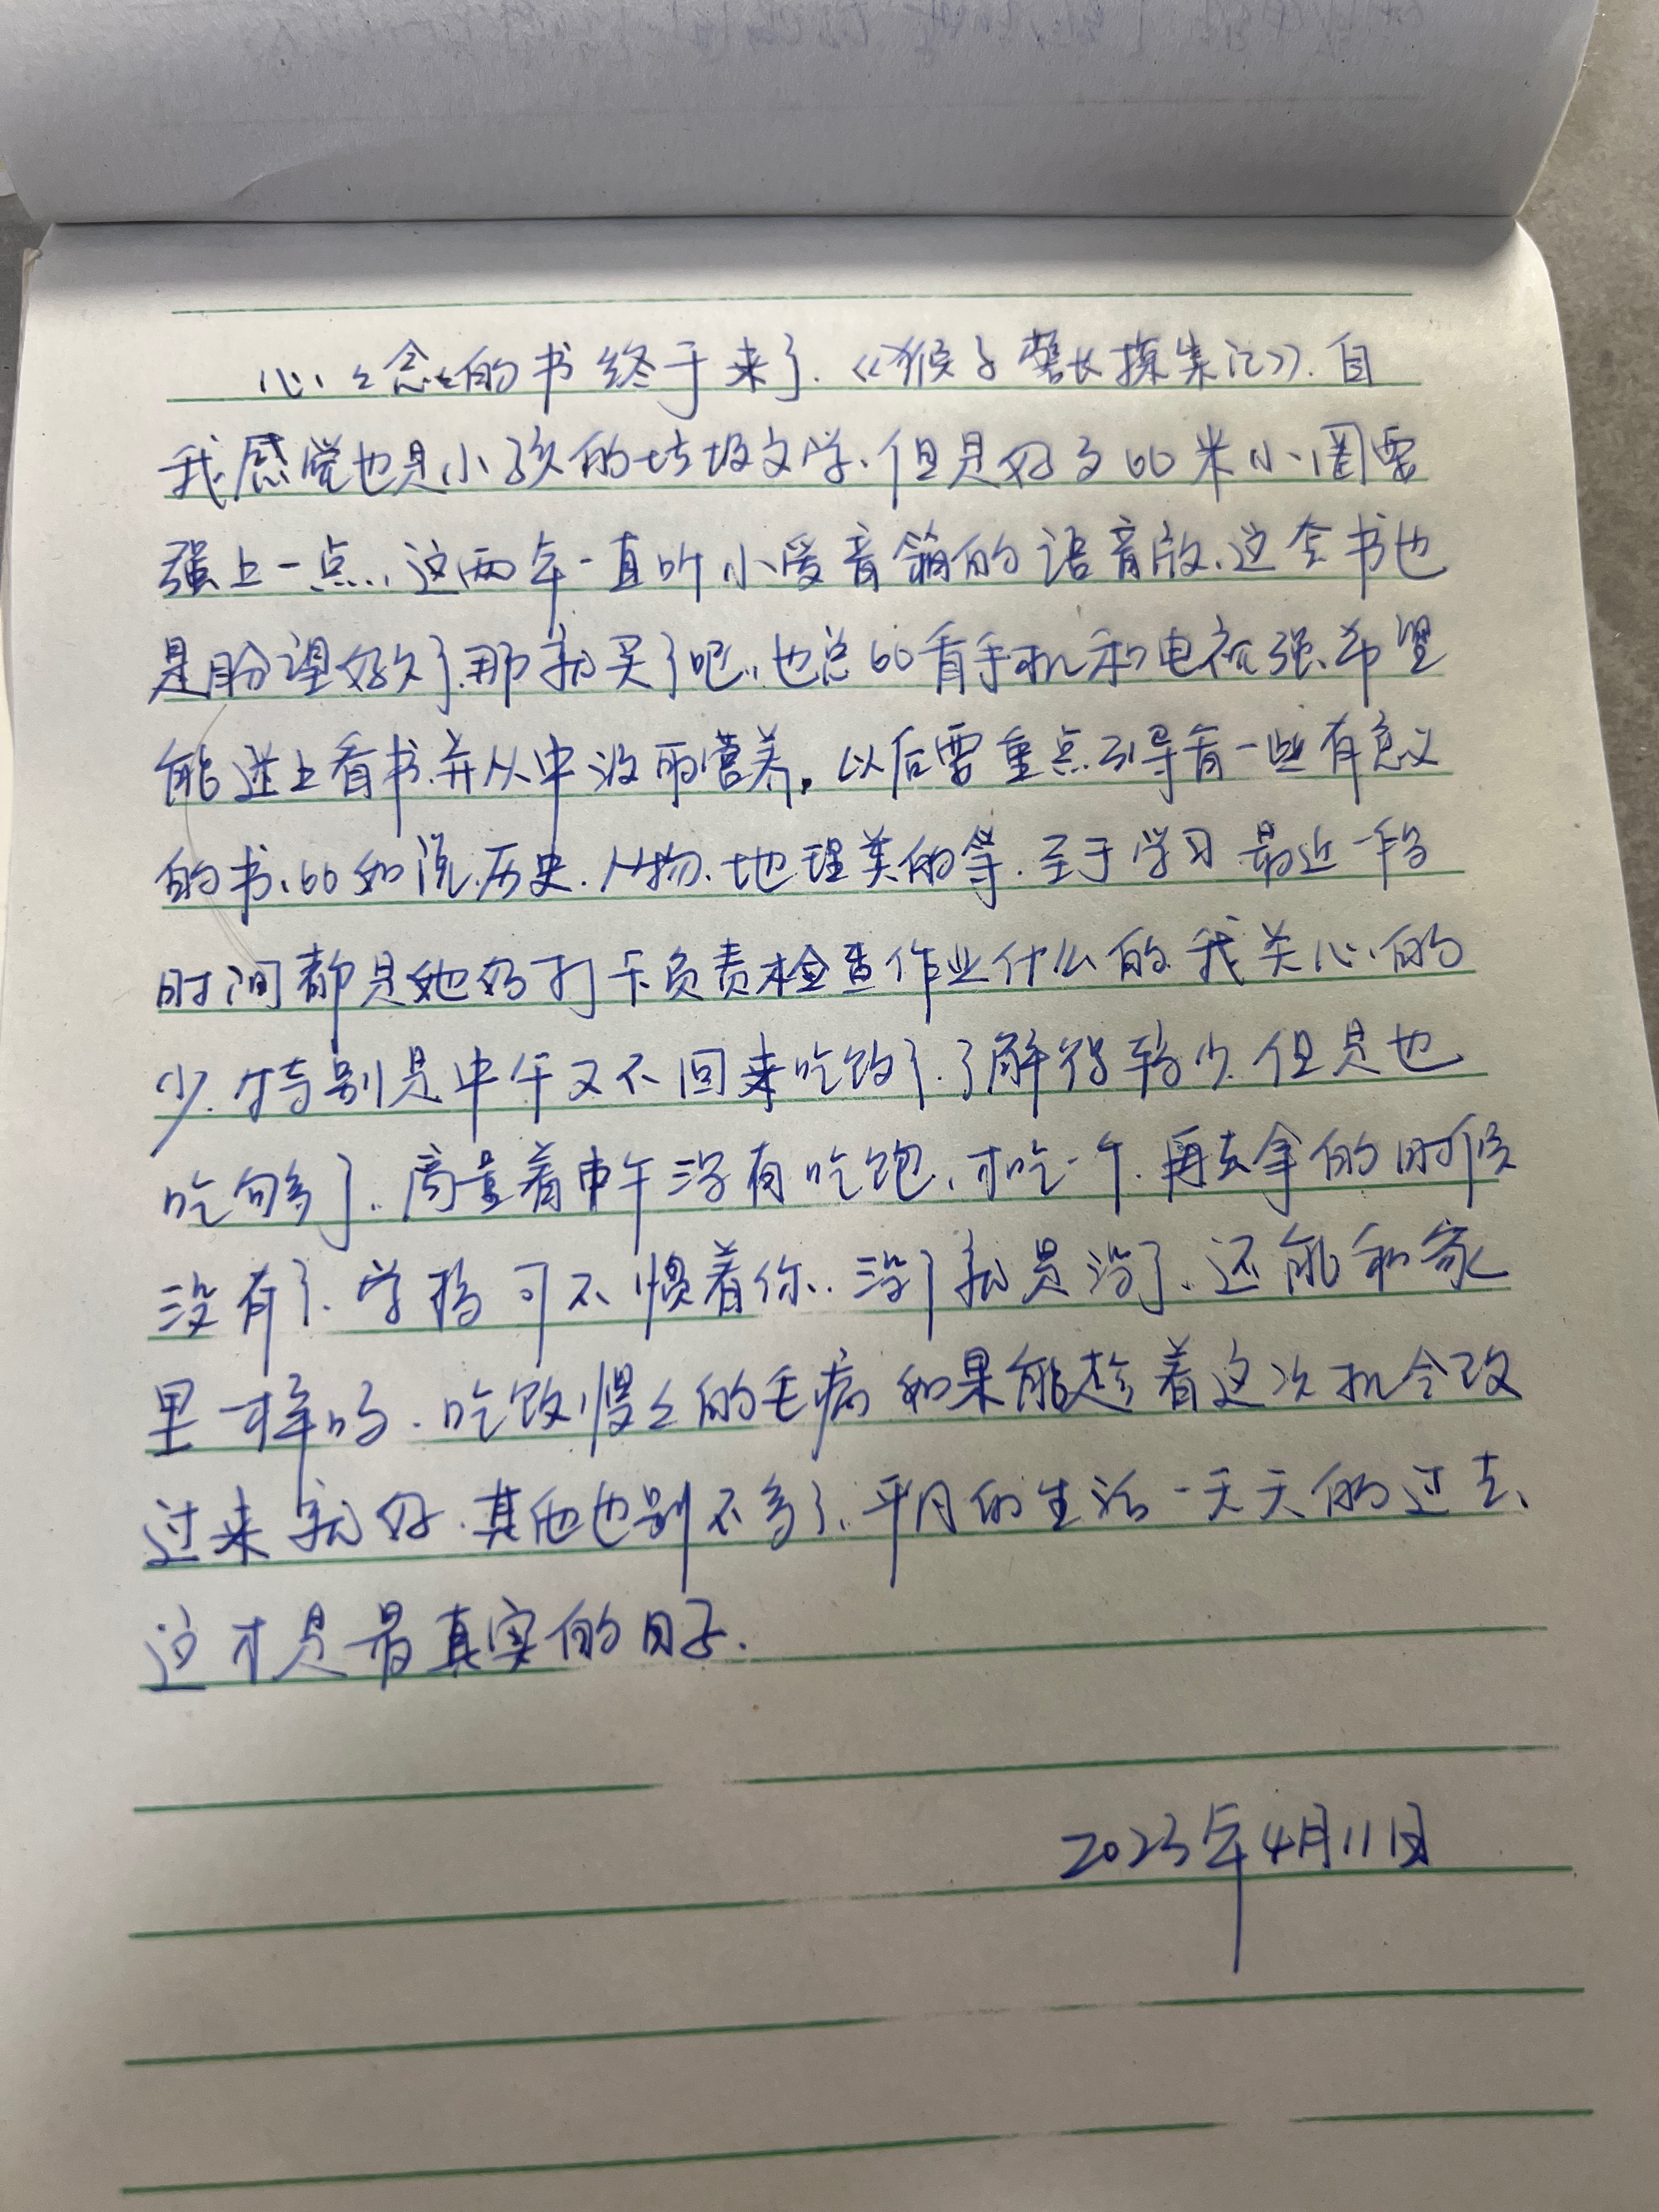 心心念念的书终于来了.《猴子警长探案记》.自
我感觉也是小孩的垃圾文学、但是好歹比米小圈要
强上一点、这两年一直听小爱音箱的语音版、这套书也
是盼望好久了.那就买了吧、也总比看手机和电视强、希望
能迷上看书、并从中汲取营养。以后要重点引导看一些有意义
的书、比如说.历史.人物.地理类的等.至于学习 最近一段
时间都是她妈打卡负责检查作业什么的.我关心的
少.特别是中午又不回来吃饭了.了解得较少.但是也
吃够了.商量着中午没有吃饱、才吃一个.再去拿的时候
没有了.学校可不惯着你.没了就是没了、还能和家
里一样吗.吃饭慢慢的毛病 如果能趁着这次机会改
过来就好.其他也别不多了.平凡的生活一天天的过去、
这才是最真实的日子.
2023年4月11日